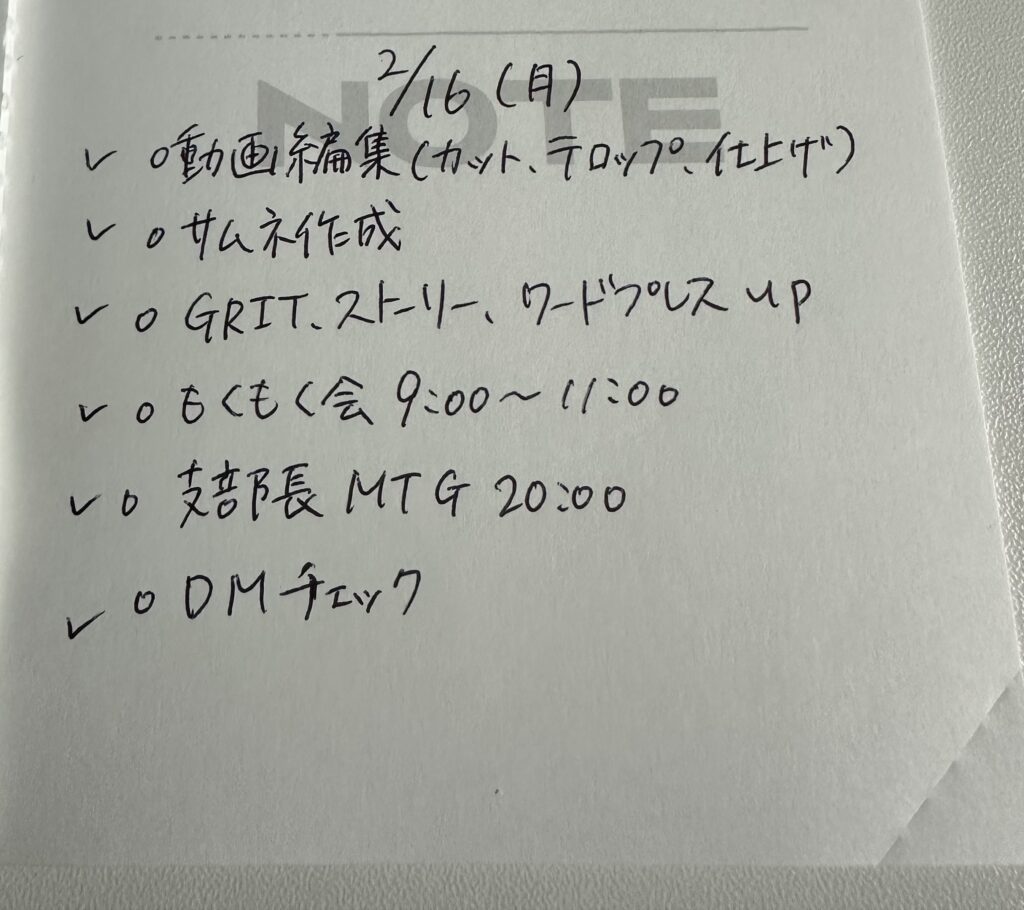 NOTE
2/16(月)
✓ ○動画編集(カット、テロップ、仕上げ)
✓ ○サムネ作成
✓ ○GRIT、ストーリー、ワードプレスup
✓ ○もくもく会 9:00～11:00
✓ ○支部長MTG 20:00
✓ ○DMチェック